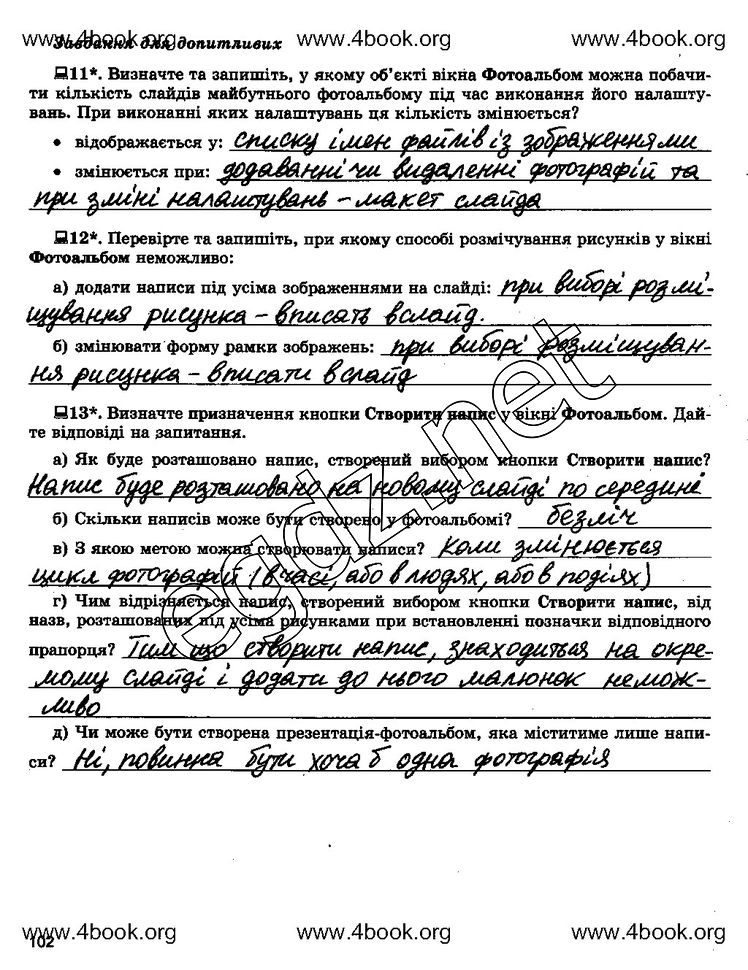 www.4book.org www.4book.org www.4book.org
Завдання для допитливих
11*. Визначте та запишіть, у якому об'єкті вікна Фотоальбом можна побачи-
ти кількість слайдів майбутнього фотоальбому під час виконання його налашту-
вань. При виконанні яких налаштувань ця кількість змінюється?
• відображається у: списку імен файлів із зображеннями
• змінюється при: додаванні чи видаленні фотографій та
при зміні налаштувань – макет слайда
12*. Перевірте та запишіть, при якому способі розмічування рисунків у вікні
Фотоальбом неможливо:
а) додати написи під усіма зображеннями на слайді: при виборі розмі-
щування рисунка – вписать в слайд.
б) змінювати форму рамки зображень: при виборі розміщуван-
ня рисунка – вписати в слайд
13*. Визначте призначення кнопки Створити напис у вікні Фотоальбом. Дай-
те відповіді на запитання.
а) Як буде розташовано напис, створений вибором кнопки Створити напис?
Напис буде розташовано на новому слайді по середині
б) Скільки написів може бути створено у фотоальбомі? безліч
в) З якою метою можна створювати написи? Коли змінюється
цикл фотографій (в часі, або в людях, або в подіях)
г) Чим відрізняється напис, створений вибором кнопки Створити напис, від
назв, розташованих під усіма рисунками при встановленні позначки відповідного
прапорця? Тим що створити напис, знаходиться на окре-
мому слайді і додати до нього малюнок немож-
ливо
д) Чи може бути створена презентація-фотоальбом, яка міститиме лише напи-
си? Ні, повинна бути хоча б одна фотографія
egdz.net
www.4book.org www.4book.org www.4book.org
102